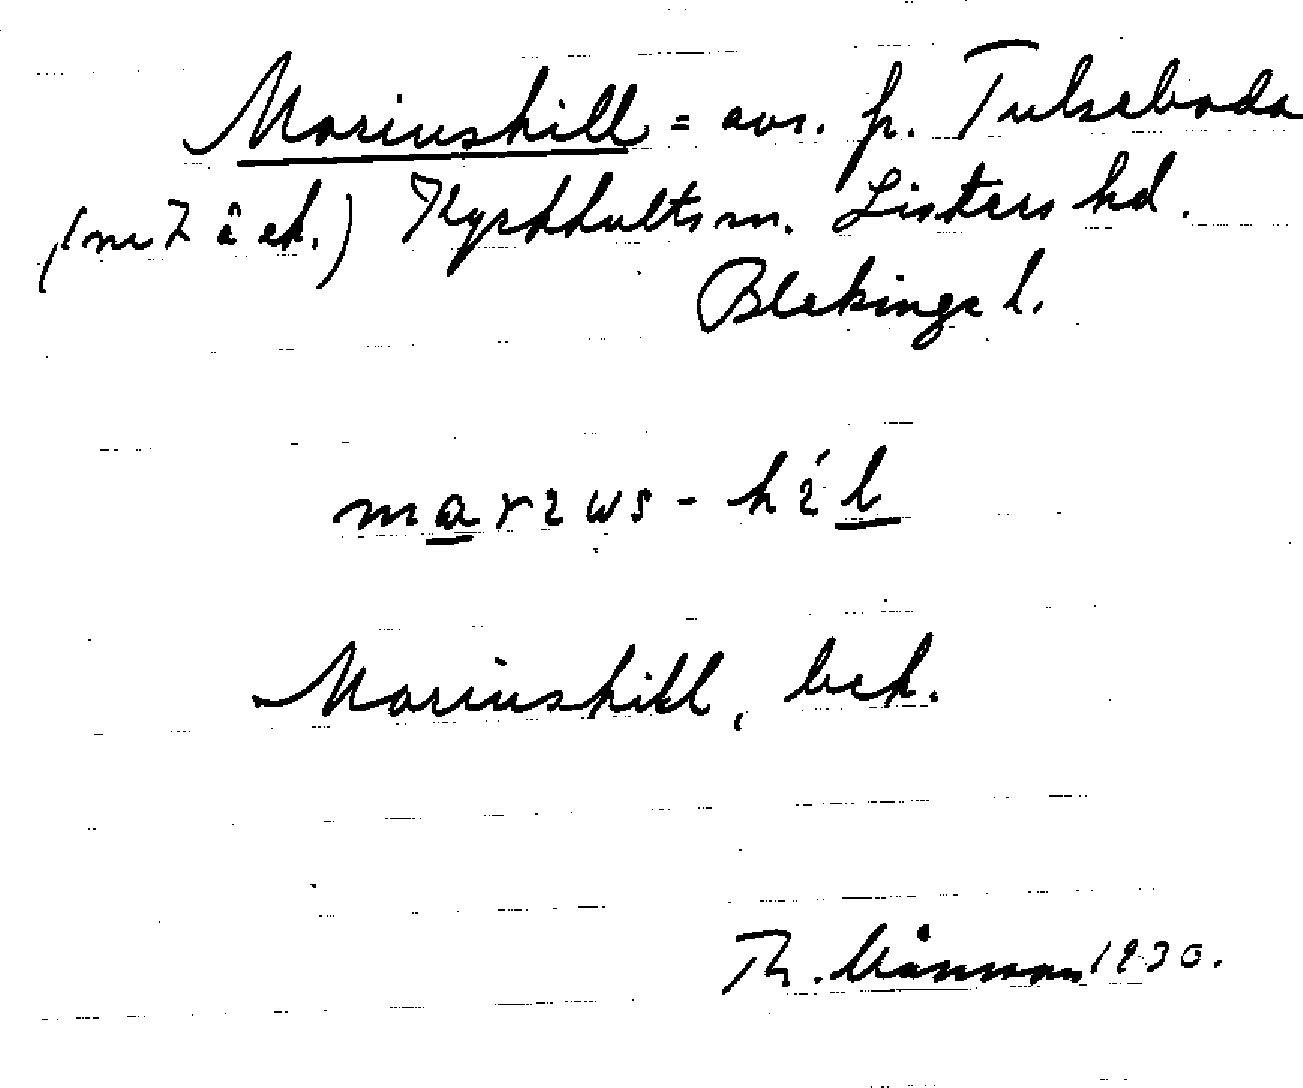 Mariushill = avs. fr. Tulseboda
(nr 7 å ek.) Kyrkhults sn. Listers hd.
Blekinge l.
marius-híl
Mariushill, bek.
Th. Månsson 1930.